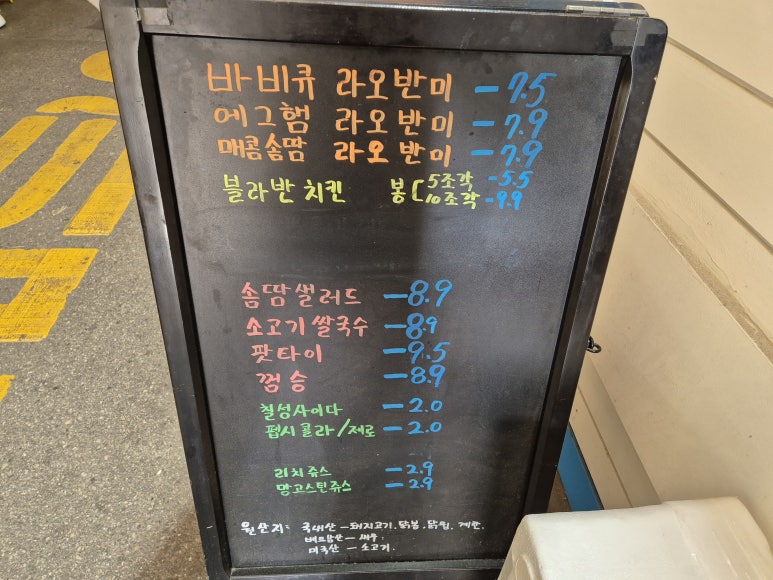 바비큐 라오반미 - 7.5
에그햄 라오반미 - 7.9
매콤솜땀 라오반미 - 7.9
블라반치킨 봉[5조각 - 5.5
10조각 - 9.9
솜땀샐러드 - 8.9
소고기쌀국수 - 8.9
팟타이 - 9.5
껌승 - 8.9
칠성사이다 - 2.0
펩시콜라/제로 - 2.0
리치쥬스 - 2.9
망고스틴쥬스 - 2.9
원산지: 국내산 - 돼지고기, 닭봉, 닭입, 계란.
베트남산 - 새우.
미국산 - 소고기.